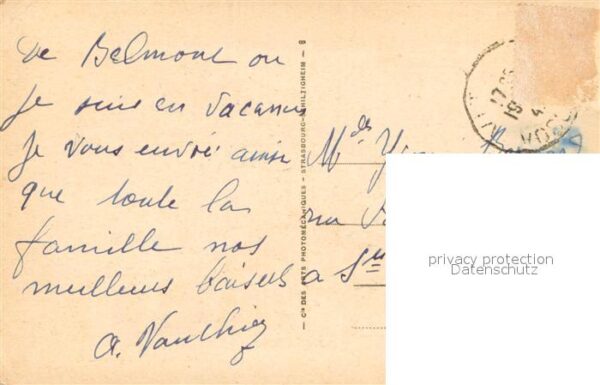 De Belmont ou
je suis en vacances
je vous envoie ainsi
que toute la
famille nos
meilleurs baisers
a. Vauthier
Cie DES ARTS PHOTOMÉCANIQUES - STRASBOURG-SCHILTIGHEIM - 8
Mdes
rue
a Ste
privacy protection
Datenschutz